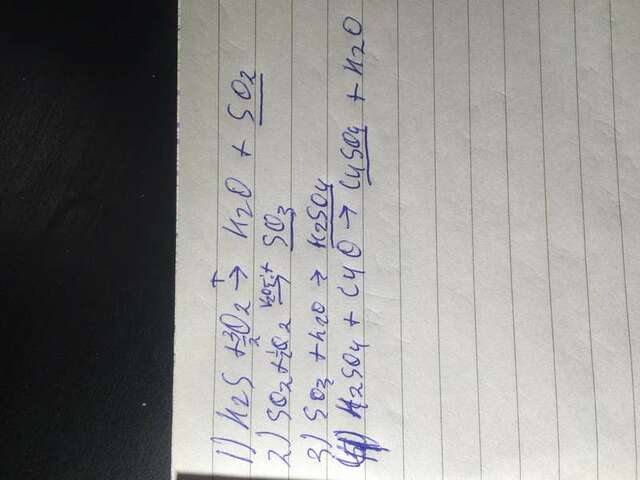 1) H2S + 3/2 O2 t→ H2O + SO2
2) SO2 + 1/2 O2 V2O5, t→ SO3
3) SO3 + H2O → H2SO4
4) H2SO4 + CuO → CuSO4 + H2O